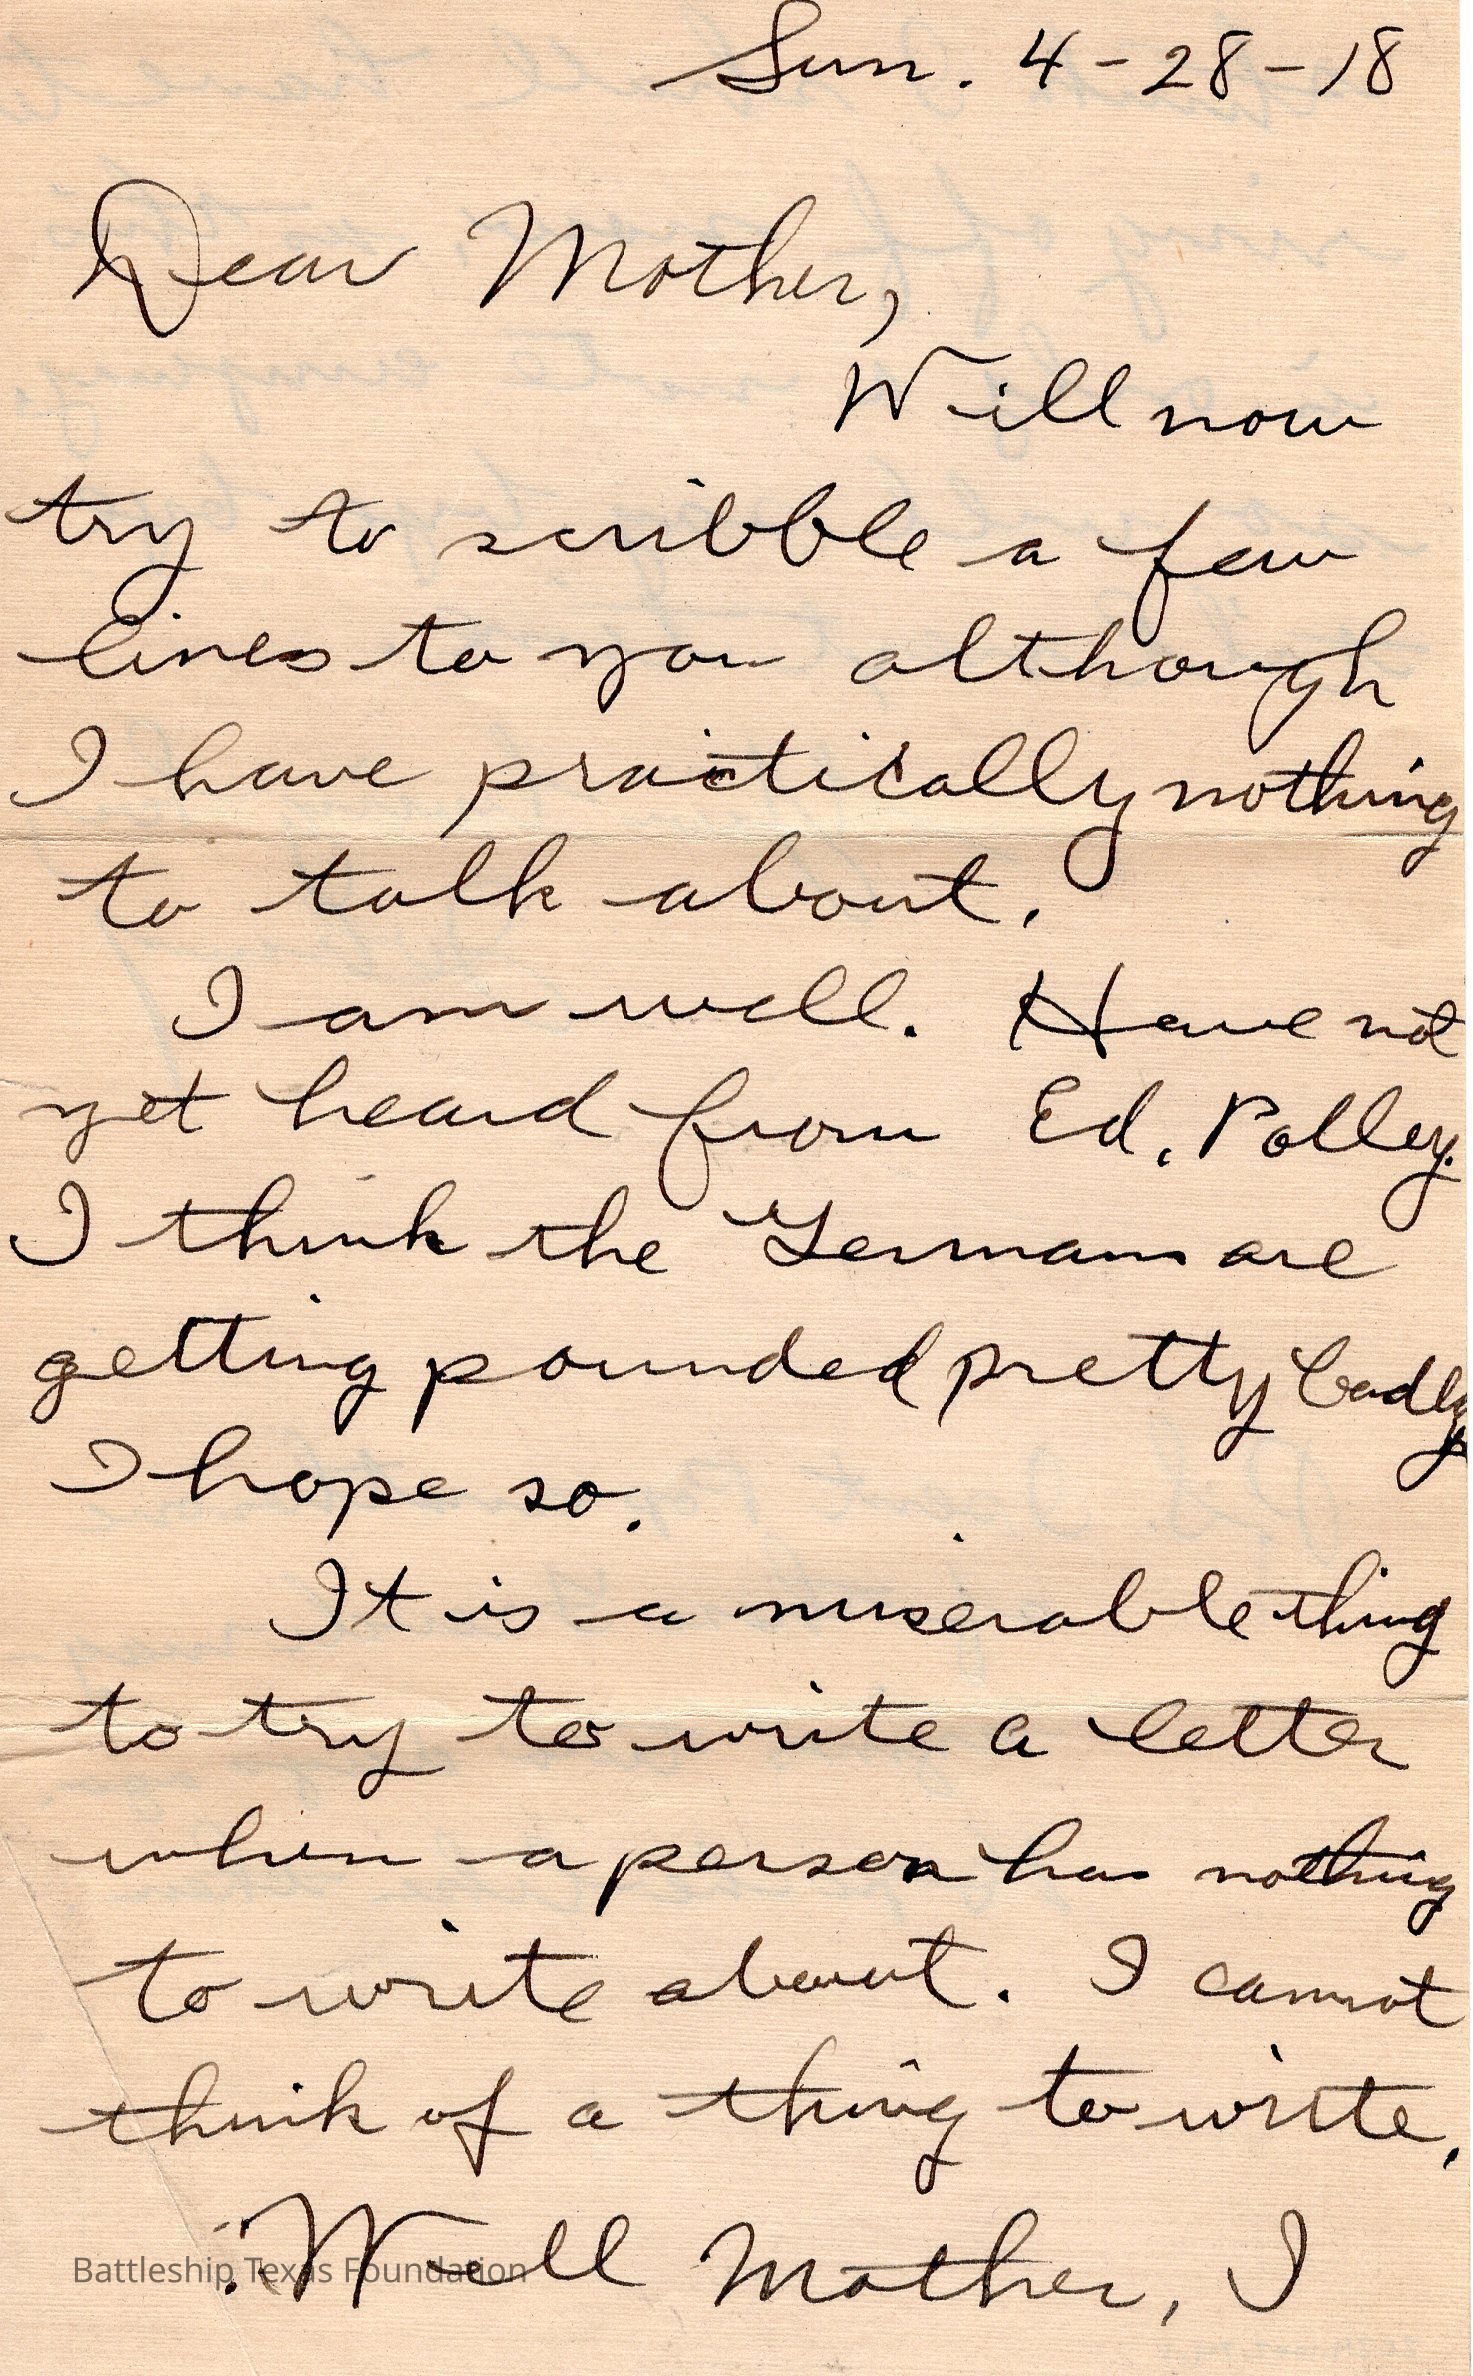 Sun. 4-28-18
Dear Mother,
Will now
try to scribble a few
lines to you although
I have practically nothing
to talk about.
I am well. Have not
yet heard from Ed. Polley.
I think the Germans are
getting pounded pretty badly,
I hope so.
It is a miserable thing
to try to write a letter
when a person has nothing
to write about. I cannot
think of a thing to write.
Well Mother, I
Battleship Texas Foundation